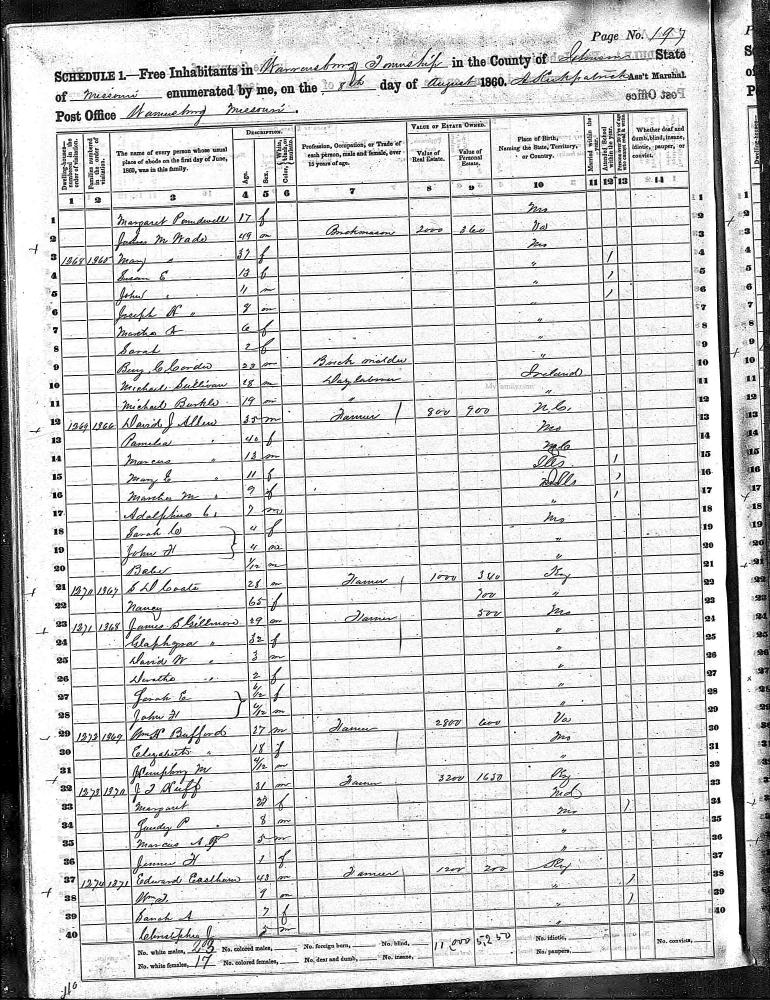 Page No. 197
SCHEDULE 1.—Free Inhabitants in Warrensburg Township in the County of Johnson State
of Missouri enumerated by me, on the 8th day of August 1860. A Kirkpatrick Ass't Marshal.
Post Office Warrensburg Missouri.
Dwelling-houses numbered in the order of visitation.
Families numbered in the order of visitation.
The name of every person whose usual place of abode on the first day of June, 1860, was in this family.
DESCRIPTION.
Age.
Sex.
Color, White, black, or mulatto.
Profession, Occupation, or Trade of each person, male and female, over 15 years of age.
VALUE OF ESTATE OWNED.
Value of Real Estate.
Value of Personal Estate.
Place of Birth, Naming the State, Territory, or Country.
Married within the year.
Attended School within the year.
Persons over 20 y'rs of age who cannot read & write.
Whether deaf and dumb, blind, insane, idiotic, pauper, or convict.
1 2 3 4 5 6 7 8 9 10 11 12 13 14
1 Margaret 17 f Mo
2 James M Wade 49 m Brickmason 2000 360 Va
3 1268 1365 Mary " 37 f Mo
4 Susan E 13 f " 1
5 John " 11 m " 1
6 Joseph " 8 m " 1
7 Martha A 6 f "
8 Sarah 2 f "
9 Benj. C Corder 23 m Brick molder "
10 Michael Sullivan 28 m Day laborer Ireland
11 Michael Burke 19 m " "
12 1269 1366 David J Allen 35 m Farmer 800 900 N C.
13 Pamelia " 40 f Mo
14 Marcus " 13 m
15 Mary E " 11 f Ills 1
16 Martha M " 9 f Ills 1
17 Adolphus C. 7 m " 1
18 Sarah 4 f Mo
19 John H 4 m "
20 Babe 1/12 m "
21 1270 1367 S D Coats 28 m Farmer 1000 340 Ky
22 Nancy 65 f 700 "
23 1271 1368 James S Gillmore 29 m Farmer 500 Mo
24 Glaphyra " 32 f "
25 David W " 3 m "
26 " 2 f "
27 Sarah E 6/12 f "
28 John H 6/12 m "
29 1272 1369 Wm H Bufford 27 m Farmer 2800 600 Va
30 Elizabeth " 18 f Mo
31 Humphrey M m "
32 1273 1370 J T Neff 31 m Farmer 3200 1650 Ky
33 Margaret f Md
34 P " 8 m Mo
35 Marcus A F 5 m "
36 H 1 f "
37 1274 1371 Edward Eastham 43 m Farmer 1200 200 Ky
38 Wm J. 9 m "
39 Sarah A 7 f "
40 Christopher J 5 m "
No. white males, 23 No. colored males, No. foreign born, No. blind, 11,000 5,250 No. idiotic, No. convicts,
No. white females, 17 No. colored females, No. deaf and dumb, No. insane, No. paupers,